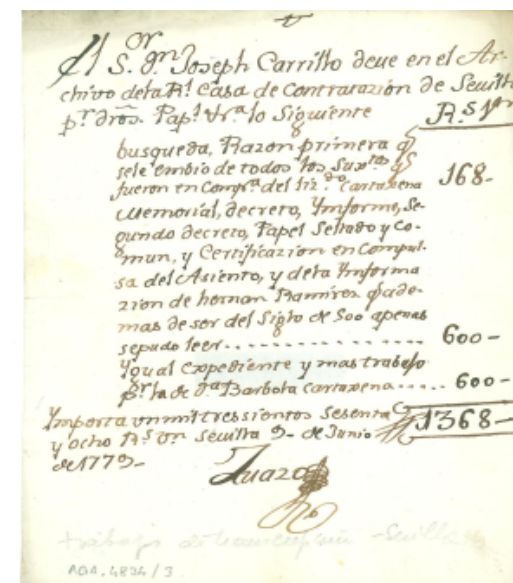 El S.or D.n Joseph Carrillo deve en el Ar-
chivo dela R.l Casa de Contratazion de Sevilla
p.r dros. Pap.l &ra lo Siguiente R.s V.n
busqueda, Razon primera q
sele embio de todos los Sux.tos q
fueron en Comp.a del Liz.do Cartaxena 168-
Memorial, decreto, Ymforme, Se-
gundo decreto, Papel Sellado y Co-
mun, y Certificazion en Compul-
sa del Asiento, y dela Ymforma
zion de hernan Ramirez q ade-
mas de ser del Siglo de 500 apenas
sepudo leer.................. 600-
Ygual Expediente y mas trabajo
p.r la de D.a Barbola Cartaxena..... 600-
Ymporta un mil tressientos Sesenta 1368-
y ocho R.s v.n Sevilla 9- de Junio
de 1779-
Zuazo
trabajo de transcripción - Sevilla
AGA, 4824/3